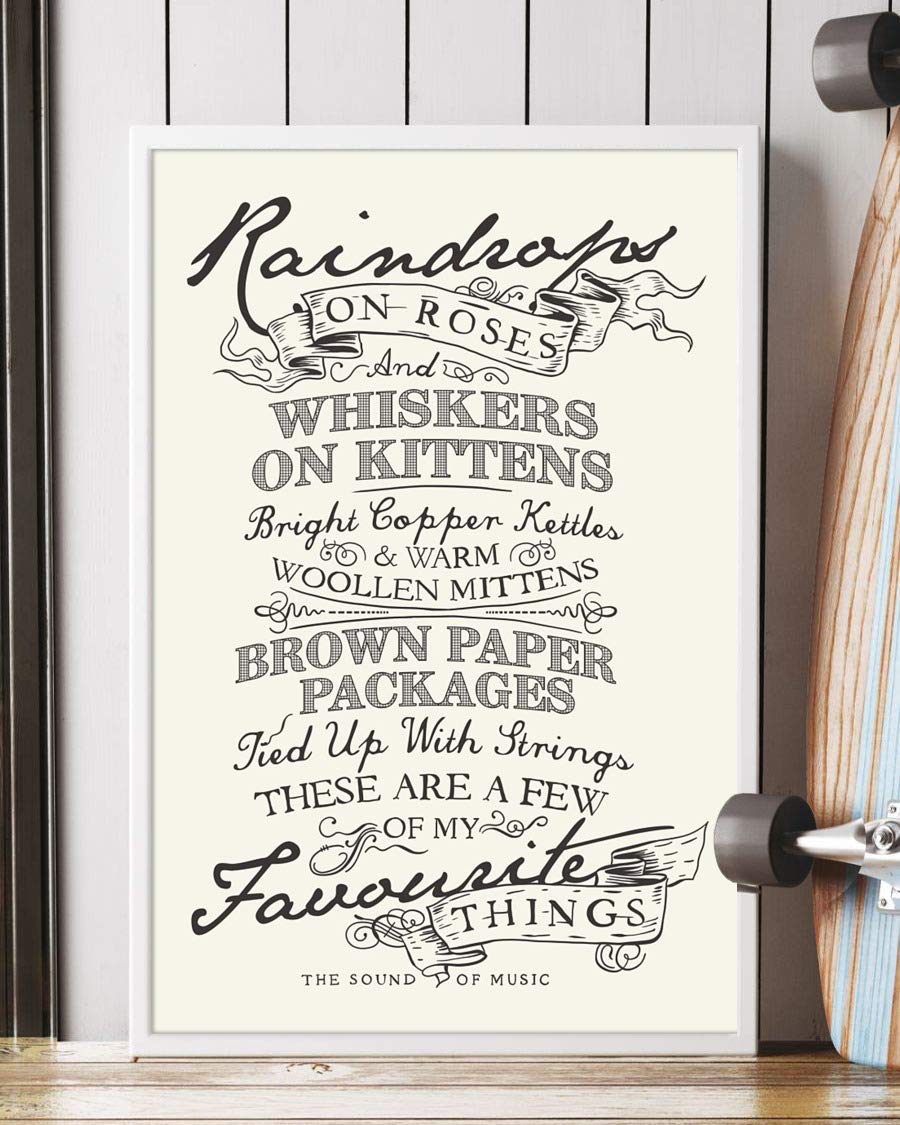 Raindrops
ON ROSES
And
WHISKERS
ON KITTENS
Bright Copper Kettles
& WARM
WOOLLEN MITTENS
BROWN PAPER
PACKAGES
Tied Up With Strings
THESE ARE A FEW
OF MY
Favourite
THINGS
THE SOUND OF MUSIC